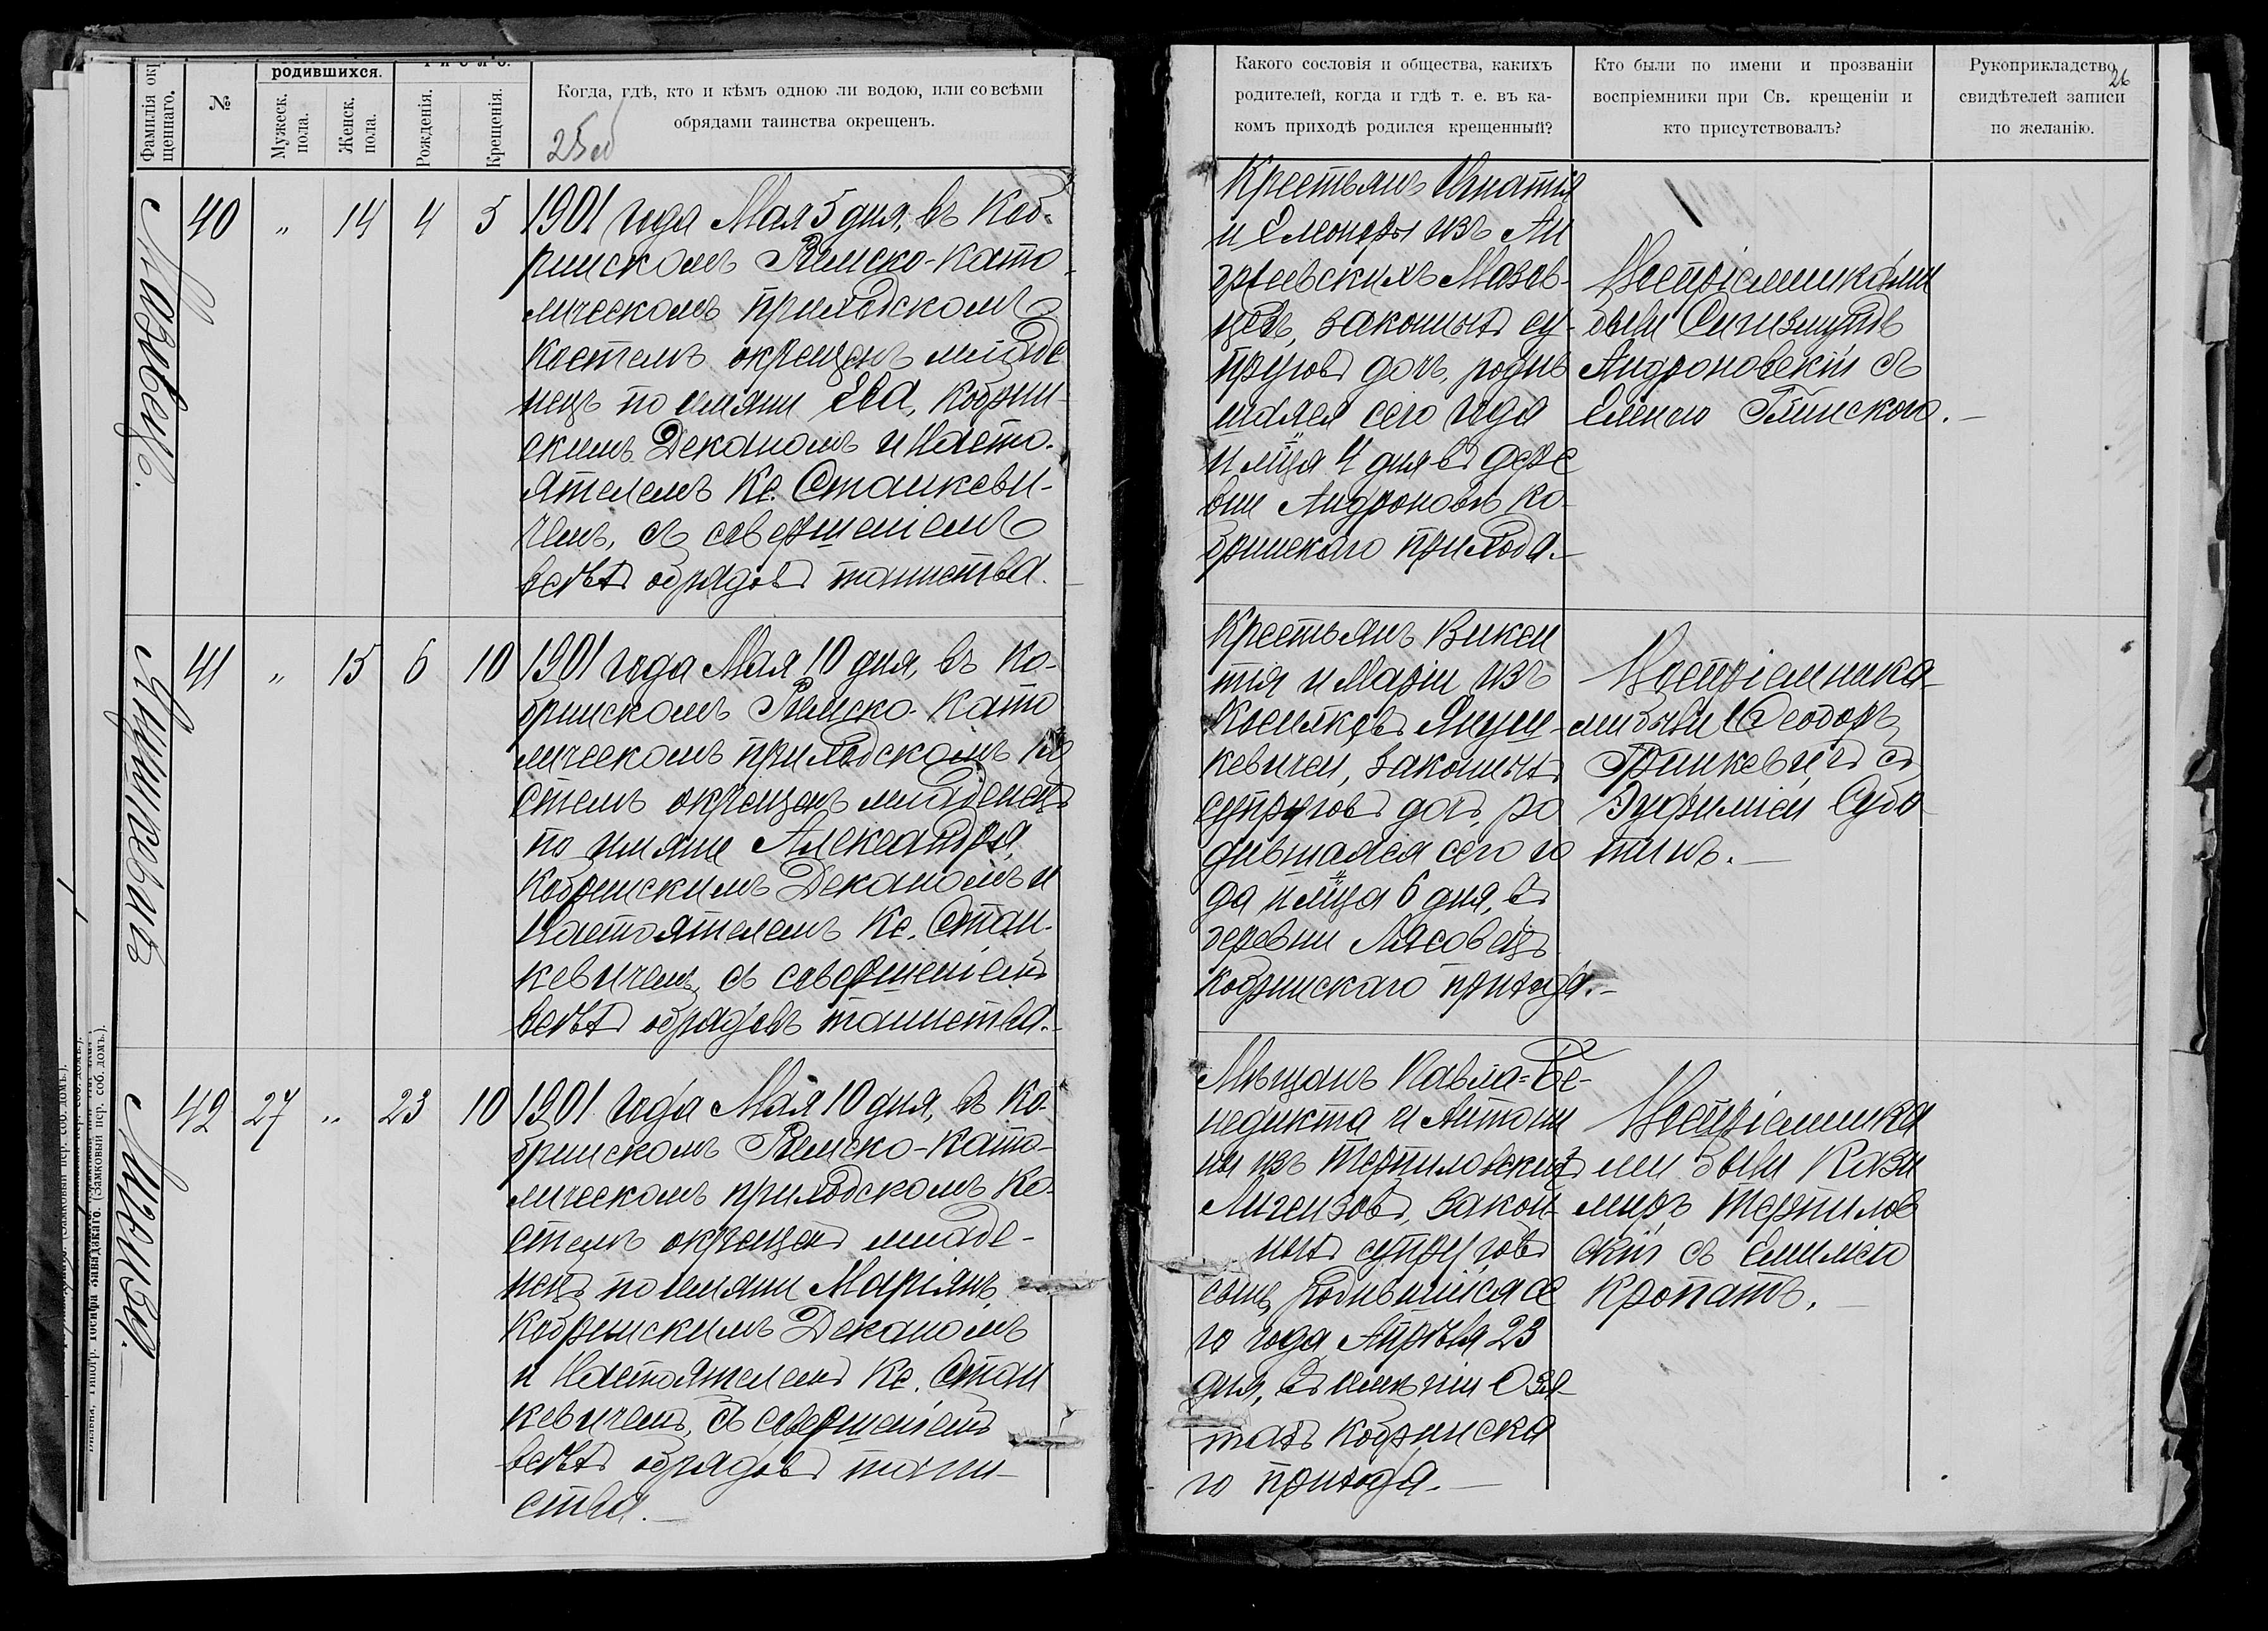 Фамилія окр
щеннаго.
№
родившихся.
Мужеск.
пола.
Женск.
пола.
Рожденія.
Крещенія.
Когда, гдѣ, кто и кѣмъ одною ли водою, или со всѣми
обрядами таинства окрещенъ.
Мазовецъ.
40 „ 14 4 5
1901 года Мая 5 дня, въ Коб-
ринскомъ Римско-Като-
лическомъ приходскомъ
костелѣ окрещенъ младе
нецъ по имяни Ева, Кобрин-
скимъ Деканомъ и Насто-
ятелемъ Кс. Станкеви-
чемъ, съ совершеніемъ
всѣхъ обрядовъ таинства.
Янушкевичъ
41 „ 15 6 10
1901 года Мая 10 дня, въ Ко-
бринскомъ Римско-Като
лическомъ приходскомъ ко
стелѣ окрещенъ младенецъ
по имяни Александра,
Кобринскимъ Деканомъ и
Настоятелемъ Кс. Стан-
кевичемъ, съ совершеніемъ
всѣхъ обрядовъ таинства.
42 27 „ 23 10
1901 года Мая 10 дня, въ Ко-
бринскомъ Римско-Като-
лическомъ приходскомъ Ко-
стелѣ окрещенъ младе-
нецъ по имяни Маріянъ,
Кобринскимъ Деканомъ
и Настоятелемъ Кс. Стан
кевичемъ, съ совершеніемъ
всѣхъ обрядовъ таин-
ства.
Іосифа Завадзкаго. (Замковый пер. соб. домъ.).
Какого сословія и общества, какихъ
родителей, когда и гдѣ т. е. въ ка-
комъ приходѣ родился крещенный?
Кто были по имени и прозванію
воспріемники при Св. крещеніи и
кто присутствовалъ?
Рукоприкладство
свидѣтелей записи
по желанію.
26
Крестьянъ Игнатія
и Елеоноры изъ Ан
дреевскихъ Мазов-
цевъ, законныхъ су-
пруговъ дочь, родив
шаяся сего года
и мѣсца 4 дня въ дере
вни Андроновѣ Ко-
бринскаго прихода.
Воспріемниками
были Сигизмундъ
Андроновскій съ
Еленою Глинскою.
Крестьянъ Викен
тія и Маріи изъ
Януш-
кевичей, законныхъ
супруговъ дочь, ро
дившаяся сего го
да и мѣсца 6 дня, въ
деревни Лясовецъ
Кобринскаго прихода.
Воспріемника-
ми были Ѳеодоръ
Гринкевичъ съ
Эуфиміей Субо
тинъ.
Мѣщанъ Павла-Бе-
недикта и Антони
ны изъ Терпиловскихъ
Лигензовъ, закон-
ныхъ супруговъ
сынъ, родившійся се
го года Апрѣля 23
дня, въ имѣніи Озя-
тахъ Кобринска
го прихода.
Воспріемника
ми были Кази
миръ Терпилов
скій съ Емиліею
Кропать.